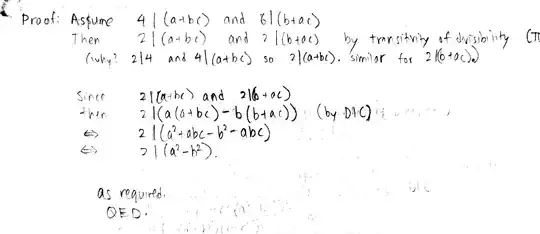 Proof: Assume 4 | (a+bc) and 6 | (b+ac)
Then 2 | (a+bc) and 2 | (b+ac) by transitivity of divisibility
(why? 2|4 and 4|(a+bc) so 2|(a+bc). similar for 2|(b+ac).)
Since 2|(a+bc) and 2|(b+ac)
then 2 | (a(a+bc) - b(b+ac)) (by DIC)
⇔ 2 | (a²+abc-b²-abc)
⇔ 2 | (a²-b²).
as required.
QED.